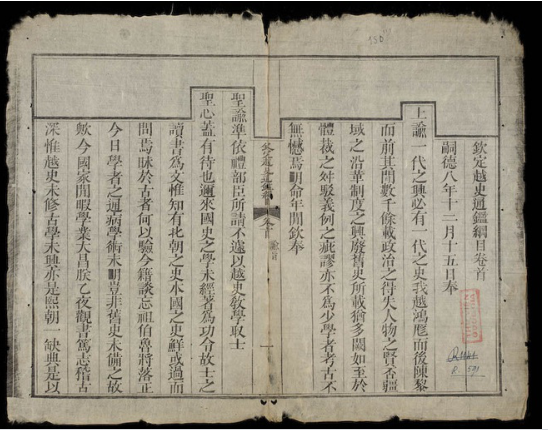 欽定越史通鑑綱目卷首
嗣德八年十二月十五日奉
上諭一代之興必有一代之史我越鴻厖而後陳黎
而前其間數千餘載政治之得失人物之賢否疆
域之沿革制度之興廢舊史所載猶多闕如至於
體裁之舛駁義例之疵謬亦不為少學者考古不
無憾焉明命年間欽奉
聖諭準依禮部臣所請不遽以越史敎學取士
聖心蓋有待也邇來國史之學未經著為功令故士之
讀書為文惟知有北朝之史本國之史鮮或過而
問焉昧於古者何以驗今籍談忘祖伯魯將落正
今日學者之通病學術未明豈非舊史未備之故
歟今國家閒暇學業大昌朕乙夜觀書篤志稽古
深惟越史未修古學未興亦是熙朝一缺典是以